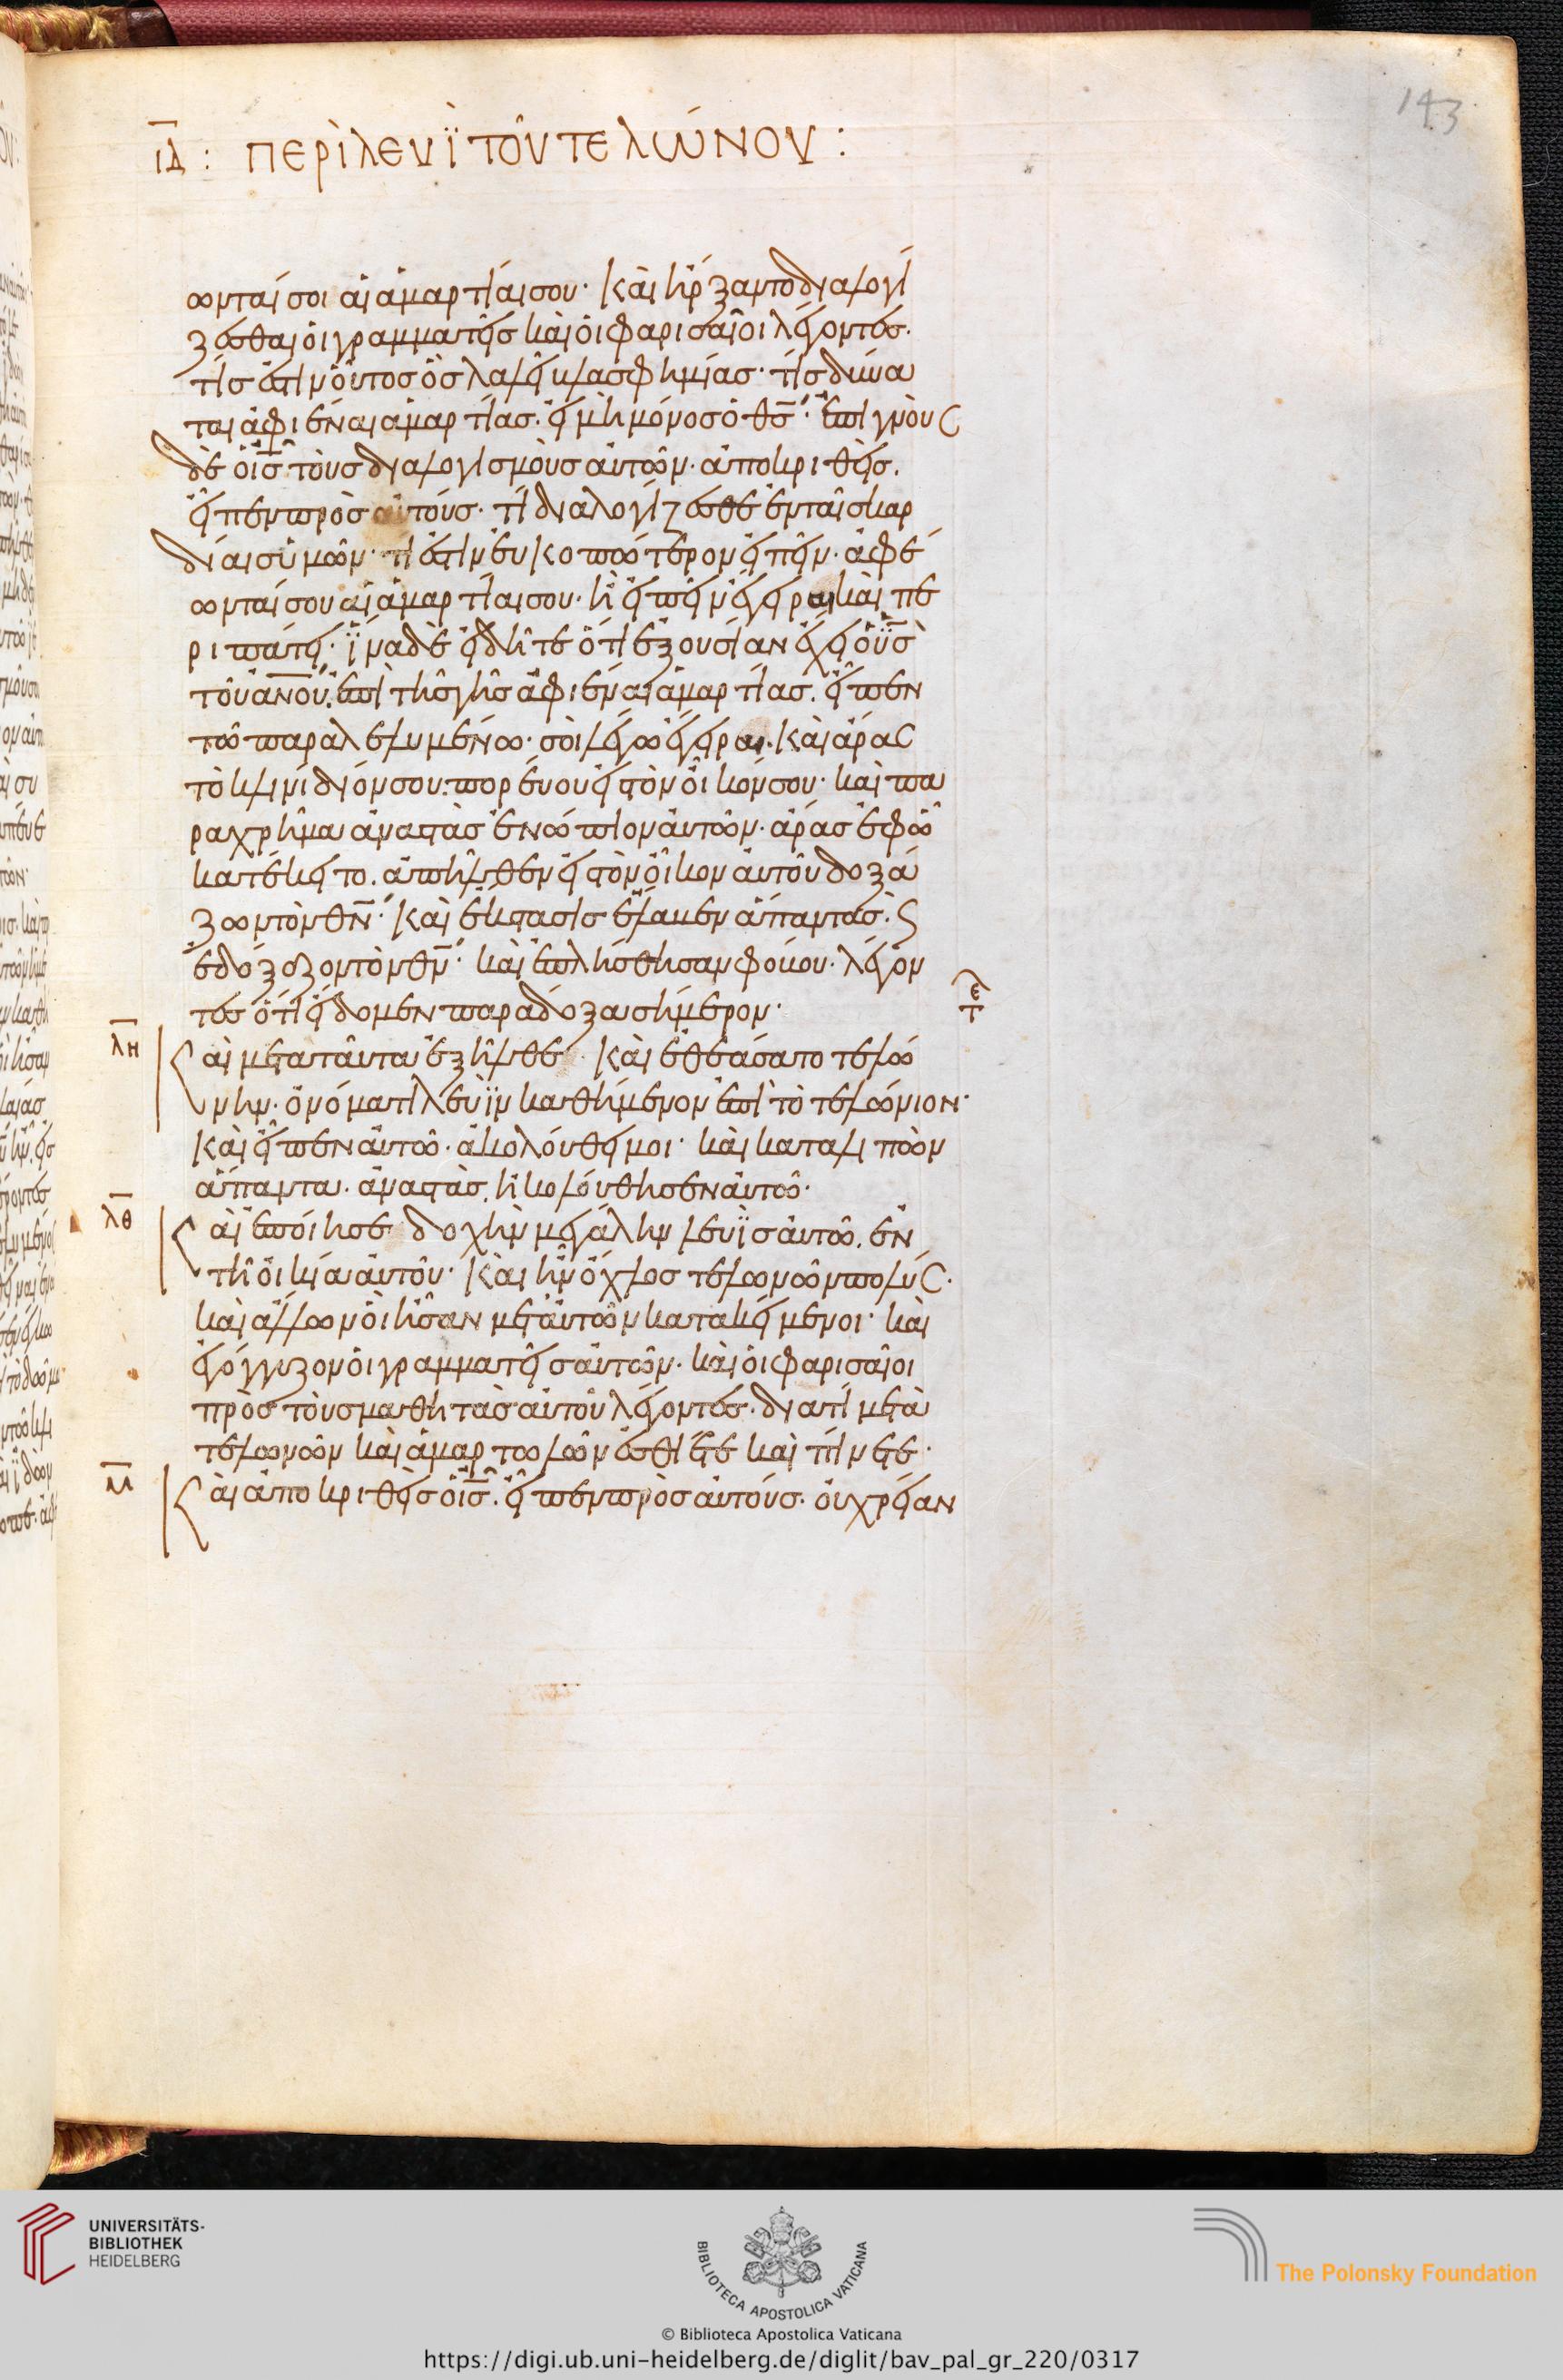 143
ιδ : περὶ λευῒ τοῦ τελώνου :
ωνταί σοι αἱ ἁμαρτίαι σου· καὶ ἤρξαντο διαλογί
ζεσθαι οἱ γραμματεῖς καὶ οἱ φαρισαῖοι λέγοντες·
τίς ἐστιν οὗτος ὃς λαλεῖ βλασφημίας· τίς δύνα
ται ἀφιέναι ἁμαρτίας· εἰ μὴ μόνος ὁ θς· ἐπιγνοὺς
δὲ ὁ ις τοὺς διαλογισμοὺς αὐτῶν· ἀποκριθεὶς.
εἶπεν πρὸς αὐτούς· τί διαλογίζεσθε ἐν ταῖς καρ
δίαις ὑμῶν· τί ἐστιν εὐκοπώτερον εἰπεῖν· ἀφέ
ωνταί σου αἱ ἁμαρτίαι σου· ἢ εἰπεῖν ἔγειραι καὶ πε
ριπάτει· ἵνα δὲ εἰδῆτε ὅτι ἐξουσίαν ἔχει ὁ υς
τοῦ ανου· ἐπὶ τῆς γῆς ἀφιέναι ἁμαρτίας. εἶπεν
τῶ παραλελυμένω· σοὶ λέγω ἔγειραι· καὶ ἄρας
τὸ κλινίδιόν σου· πορεύου εἰς τὸν οἶκόν σου· καὶ πα
ραχρῆμα ἀναστὰς ἐνώπιον αὐτῶν· ἄρας ἐφ ὧ
κατέκειτο. ἀπῆλθεν εἰς τὸν οἶκον αὐτοῦ δοξά
ζων τὸν θν· καὶ ἔκστασις ἔλαβεν ἅπαντας. ϛ
ἐδόξαζον τὸν θν· καὶ ἐπλήσθησαν φόβου· λέγον
τες ὅτι εἴδομεν παράδοξα σήμερον· τε
λη αὶ μετὰ ταῦτα ἐξῆλθε· καὶ ἐθεάσατο τελώ
νην· ὀνόματι λευῒν καθήμενον ἐπὶ τὸ τελώνιον·
καὶ εἶπεν αὐτῶ· ἀκολούθει μοι· καὶ καταλιπὼν
ἅπαντα· ἀναστὰς, ἠκολούθησεν αὐτῶ·
λθ αὶ ἐποίησε δοχὴν μεγάλην λευῒς αὐτῶ. ἐν
τῆ οἰκία αὐτοῦ· καὶ ἦν ὄχλος τελωνῶν πολύς·
καὶ ἄλλων οἳ ἦσαν μετ αὐτῶν κατακείμενοι· καὶ
ἐγόγγυζον οἱ γραμματεῖς αὐτῶν· καὶ οἱ φαρισαῖοι
πρὸς τοὺς μαθητὰς αὐτοῦ λέγοντες· διατί μετὰ
τελωνῶν καὶ ἁμαρτωλῶν ἐσθίετε καὶ πίνετε·
μ αὶ ἀποκριθεὶς ὁ ις. εἶπεν πρὸς αὐτούς· οὐ χρείαν
UNIVERSITÄTS-
BIBLIOTHEK
HEIDELBERG
BIBLIOTECA APOSTOLICA VATICANA
The Polonsky Foundation
© Biblioteca Apostolica Vaticana
https://digi.ub.uni-heidelberg.de/diglit/bav_pal_gr_220/0317